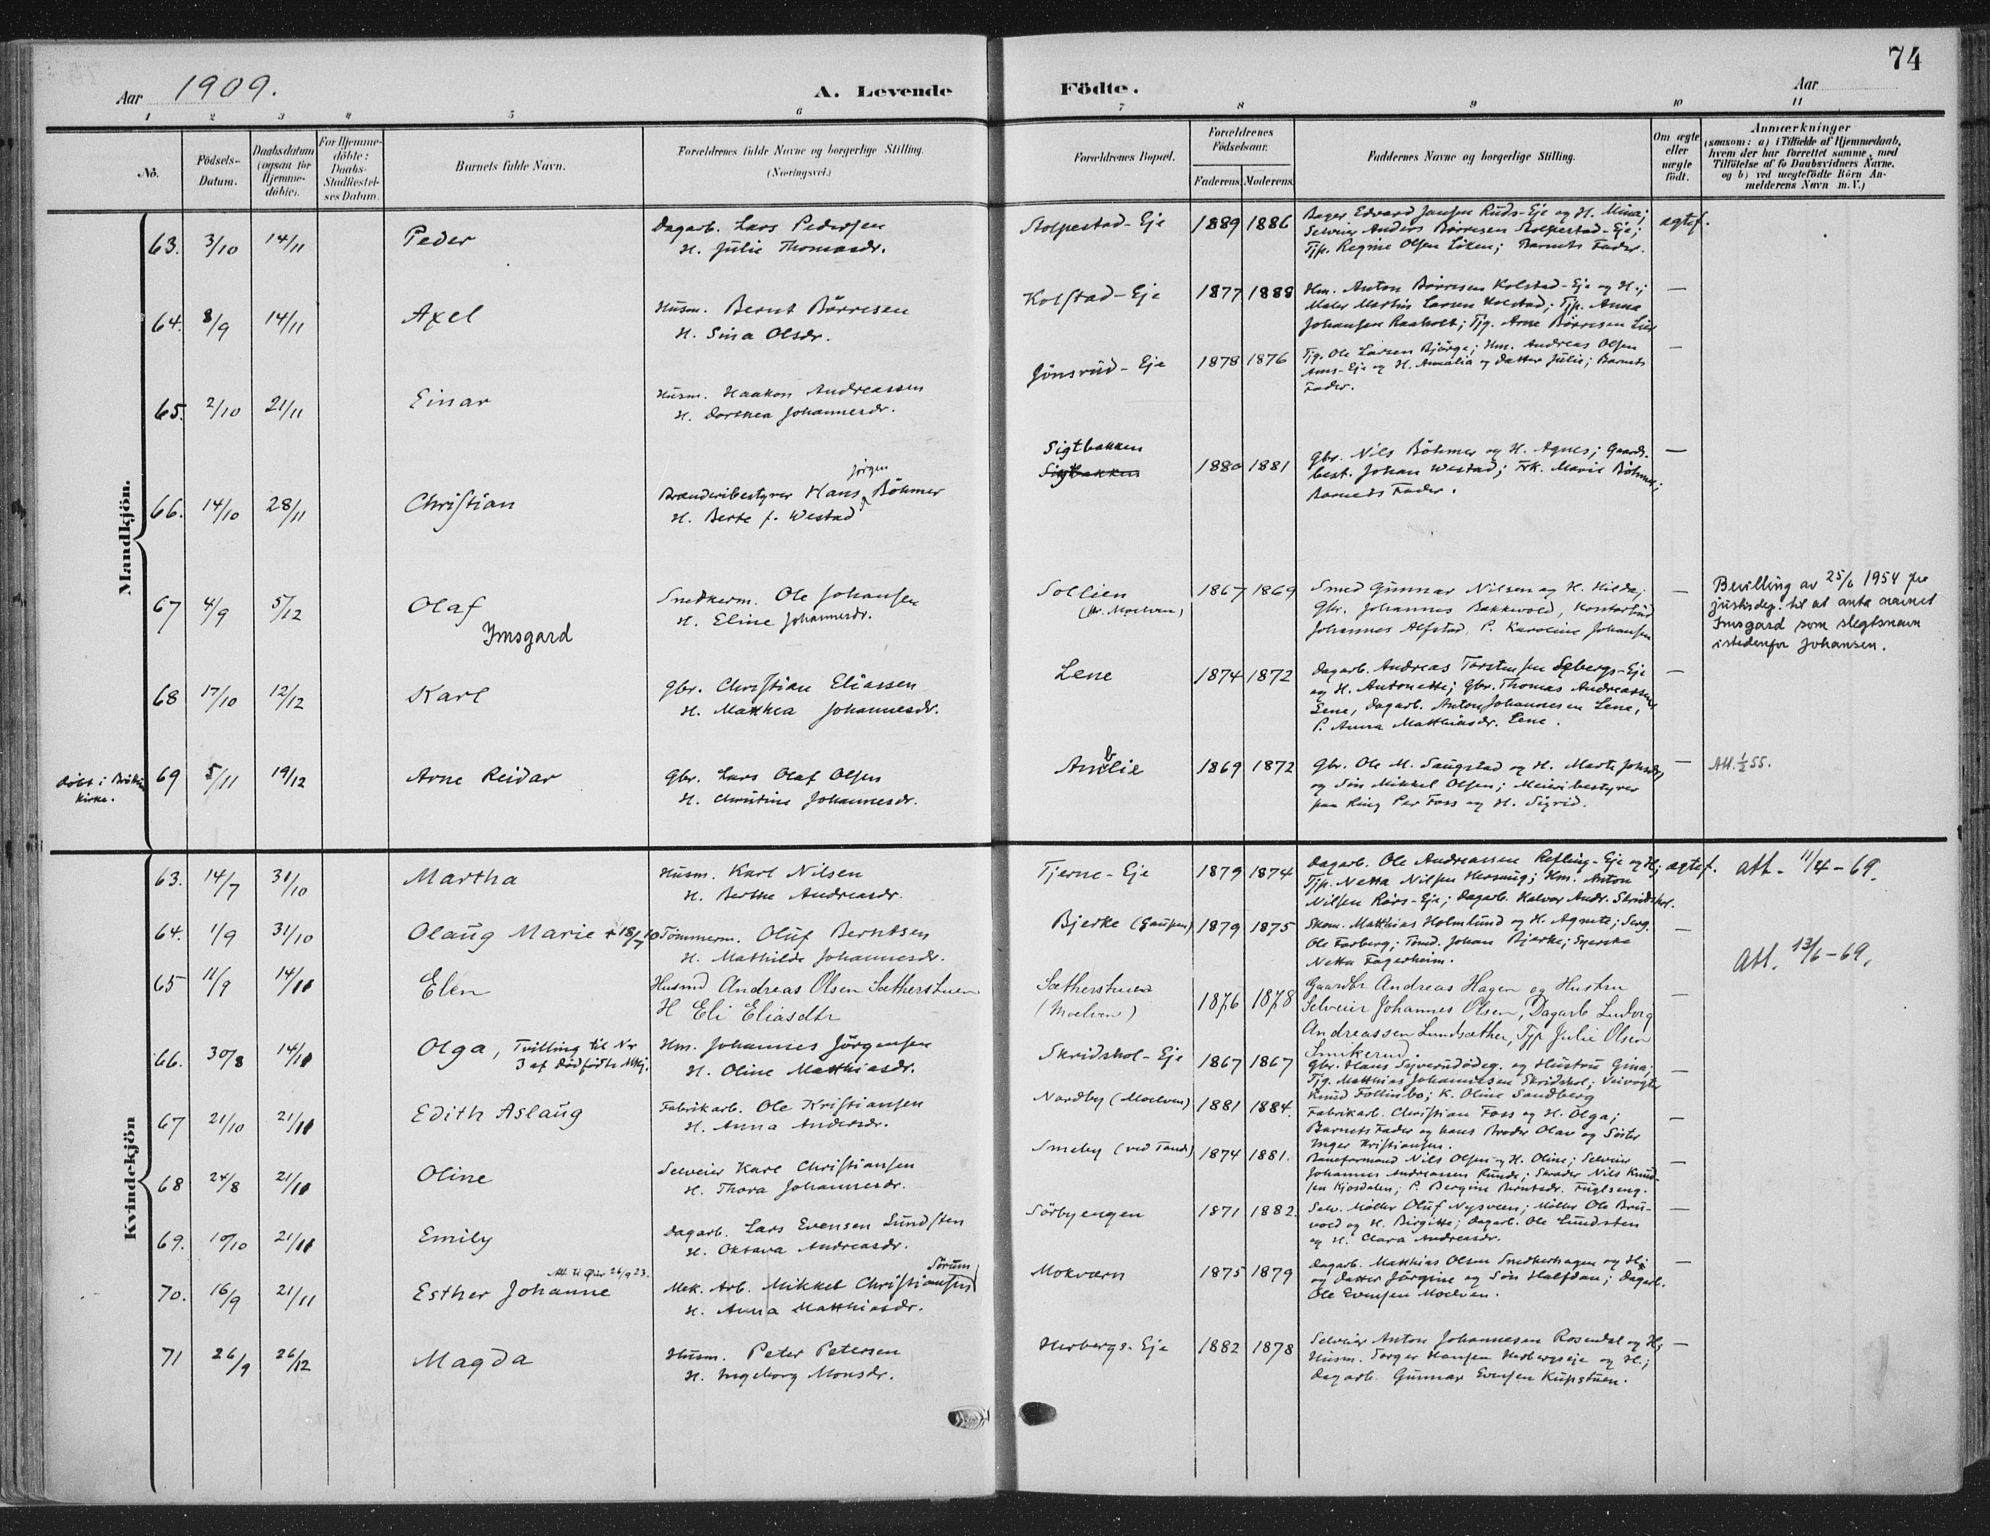 74
Aar 1909.
A. Levende Födte.
Aar
1 2 3 4 5 6 7 8 9 10 11
No.
Födsels-Datum.
Daabsdatum (ogsaa for Hjemmedöbte).
For Hjemmedöbte: Daabs-Stadfæstelses Datum.
Barnets fulde Navn.
Forældrenes fulde Navne og borgerlige Stilling. (Næringsvei.)
Forældrenes Bopæl.
Forældrenes Födselsaar.
Faderens. Moderens.
Faddernes Navne og borgerlige Stilling.
Om ægte eller uægte födt.
Anmærkninger
(saasom: a) i Tilfælde af Hjemmedaab, hvem der har forrettet samme, med Tilföielse af to Daabsvidners Navne. og b) ved uegtefödte Börn Anmelderens Navn m. V.)
Mandkjön.
63. 3/10 14/11 Peder
Dagarb. Lars Pedersen
H. Julie Thomasdr.
Stolpestad-Eje 1889 1886
Bager Edvard Jansen Ruds-Eje og H. Mina;
Selveier Anders Børresen Stolpestad-Eje;
Tjp. Regine Olsen Løken; Barnets Fader.
ægtef.
64. 8/9 14/11 Axel
Husm. Bernt Børresen
H. Sina Olsdr.
Kolstad-Eje 1877 1888
Hm. Anton Børresen Kolstad-Eje og H.;
Maler Martin Larsen Kolstad; Tjp. Anna
Johansen Raaholt; Tjg. Arne Børresen Lier
—
65. 2/10 21/11 Einar
Husm. Haakon Andreassen
H. Dorthea Johannesdr.
Jønsrud-Eje 1878 1876
Tjg. Ole Larsen Bjørge; Hm. Andreas Olsen
Ams-Eje og H. Amalia og datter Julie; Barnets
Fader.
—
66. 14/10 28/11 Christian
Jørgen
Brænderibestyrer Hans Böhmer
H. Berte f. Westad
Sigtbakken
Sigtbakken
1880 1881
Gbr. Nils Böhmer og H. Agnes; Gaards-
best. Johan Westad; Frk. Marie Böhmer;
Barnets Fader.
—
67 4/9 5/12 Olaf
Imsgard
Snedkerm. Ole Johansen
H. Eline Johannesdr.
Sollien
(pr. Moelven)
1867 1869
Smed Gunnar Nilsen og H. Hilda;
Gbr. Johannes Bakkevold, Kontorbud
Johannes Alfstad, P. Karoline Johansen
—
Bevilling av 25/6 1954 fra
justisdep. til at anta navnet
Imsgard som slegtsnavn
istedenfor Johansen.
68 17/10 12/12 Karl
Gbr. Christian Eliassen
H. Mathea Johannesdr.
Lene 1874 1872
Dagarb. Andreas Torstensen Sebergs-Eje
og H. Antonette; Gbr. Thomas Andreassen
Lene, Dagarb. Anton Johannesen Lene,
P. Anna Matthiasdr. Lene.
—
Døbt i Brøttum
Kirke.
69 5/11 19/12 Arne Reidar
Gbr. Lars Olaf Olsen
H. Christine Johannesdr.
1869 1872
Gbr. Ole M. Saugstad og H. Marte Johnsdr.
og Søn Mikkel Olsen; Meieribestyrer
paa Ring Per Foss og H. Sigrid.
—
Att. 1/2 55.
Kvindekjön
63. 14/7 31/10 Martha
Husm. Karl Nilsen
H. Berthe Andreasdr.
Tjerne-Eje 1879 1874
Dagarb. Ole Andreassen Refling-Eje og H;
Tjp. Netta Nilsen Hersaug; Hm. Anton
Nilsen Rørs-Eje; Dagarb. Halvor Andr. Skridshol.
ægtef.
att. 11/4-69.
64. 1/9 31/10 Olaug Marie + 18/7 10
Tømmerm. Oluf Berntsen
H. Mathilde Johannesdr.
Bjerke (Gaupen) 1879 1875
Skom. Matthias Holmlund og H. Agnete; Serg.
Ole Farberg; Tmd. Johan Bjerke; Syerske
Netta Fagerheim.
—
65 11/9 14/11 Elen
Husmd Andreas Olsen Sætherstuen
H Eli Eliasdtr
Sætherstuen
(Moelven)
1876 1878
Gaardbr Andreas Hagen og Hustru
Selveier Johannes Olsen, Dagarb Ludvig
Andreassen Lundsæther, Tjp Julie Olsen
Smikerud.
—
Att. 13/6-69.
66. 30/8 14/11 Olga, Tvilling til Nr
3 af dødfødte Mkj.
Hm. Johannes Jørgensen
H. Oline Matthiasdr.
Skridshol-Eje 1867 1867
Gbr. Hans Syverudødeg. og Hustru Gina;
Tjg. Matthias Johannesen Skridshol; Veivogter
Knud Follinbo; K. Oline Sandberg
—
67 21/10 21/11 Edith Aslaug
Fabrikarb. Ole Kristiansen
H. Anna Andersdr.
Nordby (Moelven) 1881 1884.
Fabrikarb. Christian Foss og H. Olga;
Barnets Fader og hans Broder Olav og Søster
Inger Kristiansen.
—
68 24/8 21/11 Oline
Selveier Karl Christiansen
H. Thora Johannesdr.
Smeby (ved Tande) 1874 1881.
Baneformand Nils Olsen og H. Oline; Selveier
Johannes Andreassen Runde; Skræder Nils Knud-
sen Kjosdalen; P. Bergine Berntsdr. Fuglseng.
—
69. 10/10 21/11 Emily
Dagarb. Lars Evensen Lundsten
H. Oktava Andreasdr.
Sørbyengen 1871 1882.
Selv. Møller Oluf Nysveen; Møller Ole Bru-
vold og H. Birgitte; Dagarb. Ole Lundsten
og H. Clara Andreasdr.
—
70. 16/9 21/11 Esther Johanne
Mek. Arb. Mikkel Christiansen
Sørum
H. Anna Matthiasdr.
Mokværn 1875 1879
Dagarb. Matthias Olsen Snedkerhagen og H.
og datter Jørgine og Søn Halfdan; Dagarb.
Ole Evensen Moelven.
—
71 26/9 26/12 Magda
Husm. Peter Petersen
H. Ingeborg Monsdr.
Herbergs-Eje 1882 1878
Selveier Anton Johannesen Rosendal og H;
Husm. Torger Hansen Herbergseje og H.;
Dagarb. Gunnar Evensen Kupstuen.
—